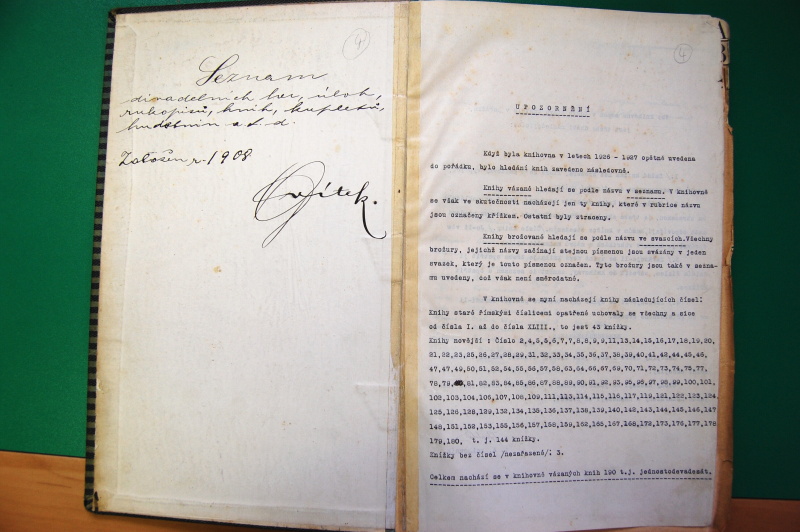 4
Seznam
divadelních her, úloh,
rukopisů, knih, kupletů,
hudebnin a t. d.
Založen r. 1908
4
UPOZORNĚNÍ
Když byla knihovna v letech 1926 - 1927 opětně uvedena
do pořádku, bylo hledání knih zavedeno následovně.
Knihy vázané hledají se podle názvu v seznamu. V knihovně
se však ve skutečnosti nacházejí jen ty knihy, které v rubrice názvu
jsou označeny křížkem. Ostatní byly straceny.
Knihy brožované hledají se podle názvu ve svazcích.Všechny
brožury, jejichž názvy začínají stejnou písmenou jsou svázány v jeden
svazek, který je touto písmenou označen. Tyto brožury jsou také v sezna-
mu uvedeny, což však není směrodatné.
V knihovně se nyní nacházejí knihy následujících čísel:
Knihy staré římskými číslicemi opatřené uchovaly se všechny a sice
od čísla I. až do čísla XLIII., to jest 43 knížky.
Knihy novější : Číslo 2,4,5,5,6,7,7,8,8,9,9,11,13,14,15,16,17,18,19,20,
21,22,23,25,26,27,28,29,31,32,33,34,35,36,37,38,39,40,41,42,44,45,46,
47,47,49,50,51,52,54,55,56,57,58,63,64,65,67,69,70,71,72,73,74,75,77,
78,79,80,81,82,83,84,85,86,87,88,89,90,91,92,93,95,96,97,98,99,100,101,
102,103,104,106,107,108,109,111,113,114,115,116,117,119,121,122,123,124
125,126,128,129,132,134,135,136,137,138,139,140,142,143,144,145,146,147
148,151,152,153,155,156,157,158,159,162,165,167,168,172,173,176,177,178
179,180, t. j. 144 knížky.
Knížky bez čísel /nezařazené/: 3.
Celkem nachází se v knihovně vázaných knih 190 t.j. jednostodevadesát.